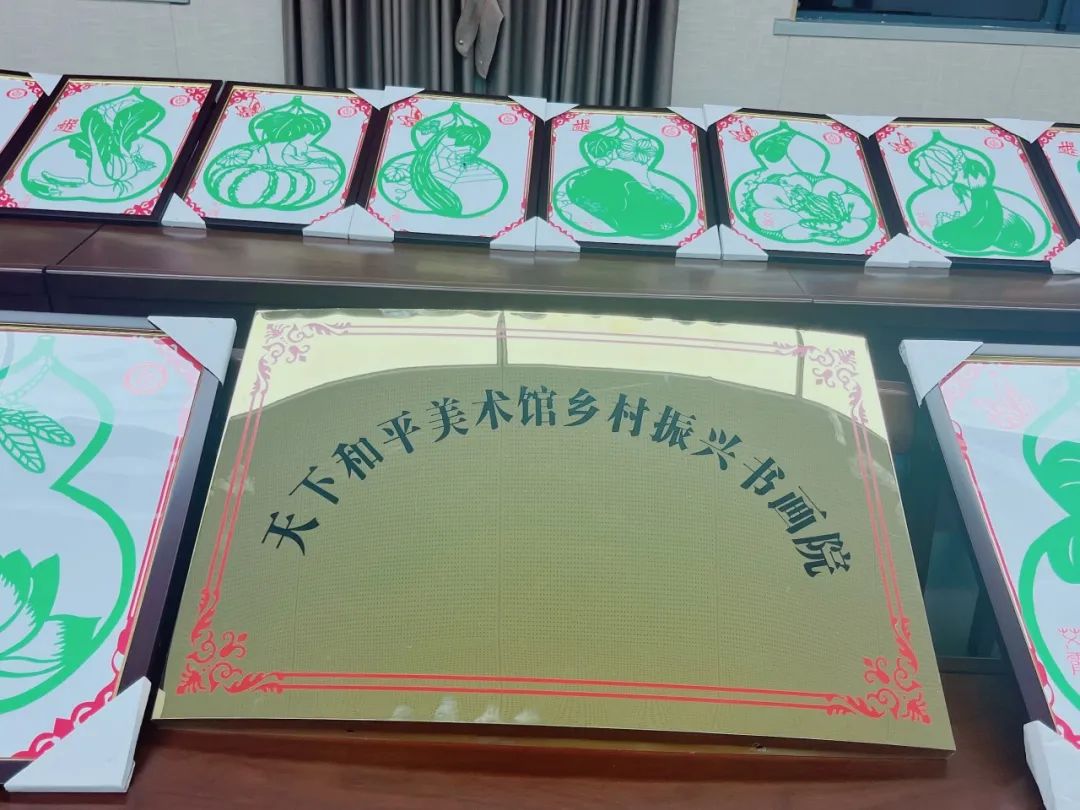 天下和平美术馆乡村振兴书画院